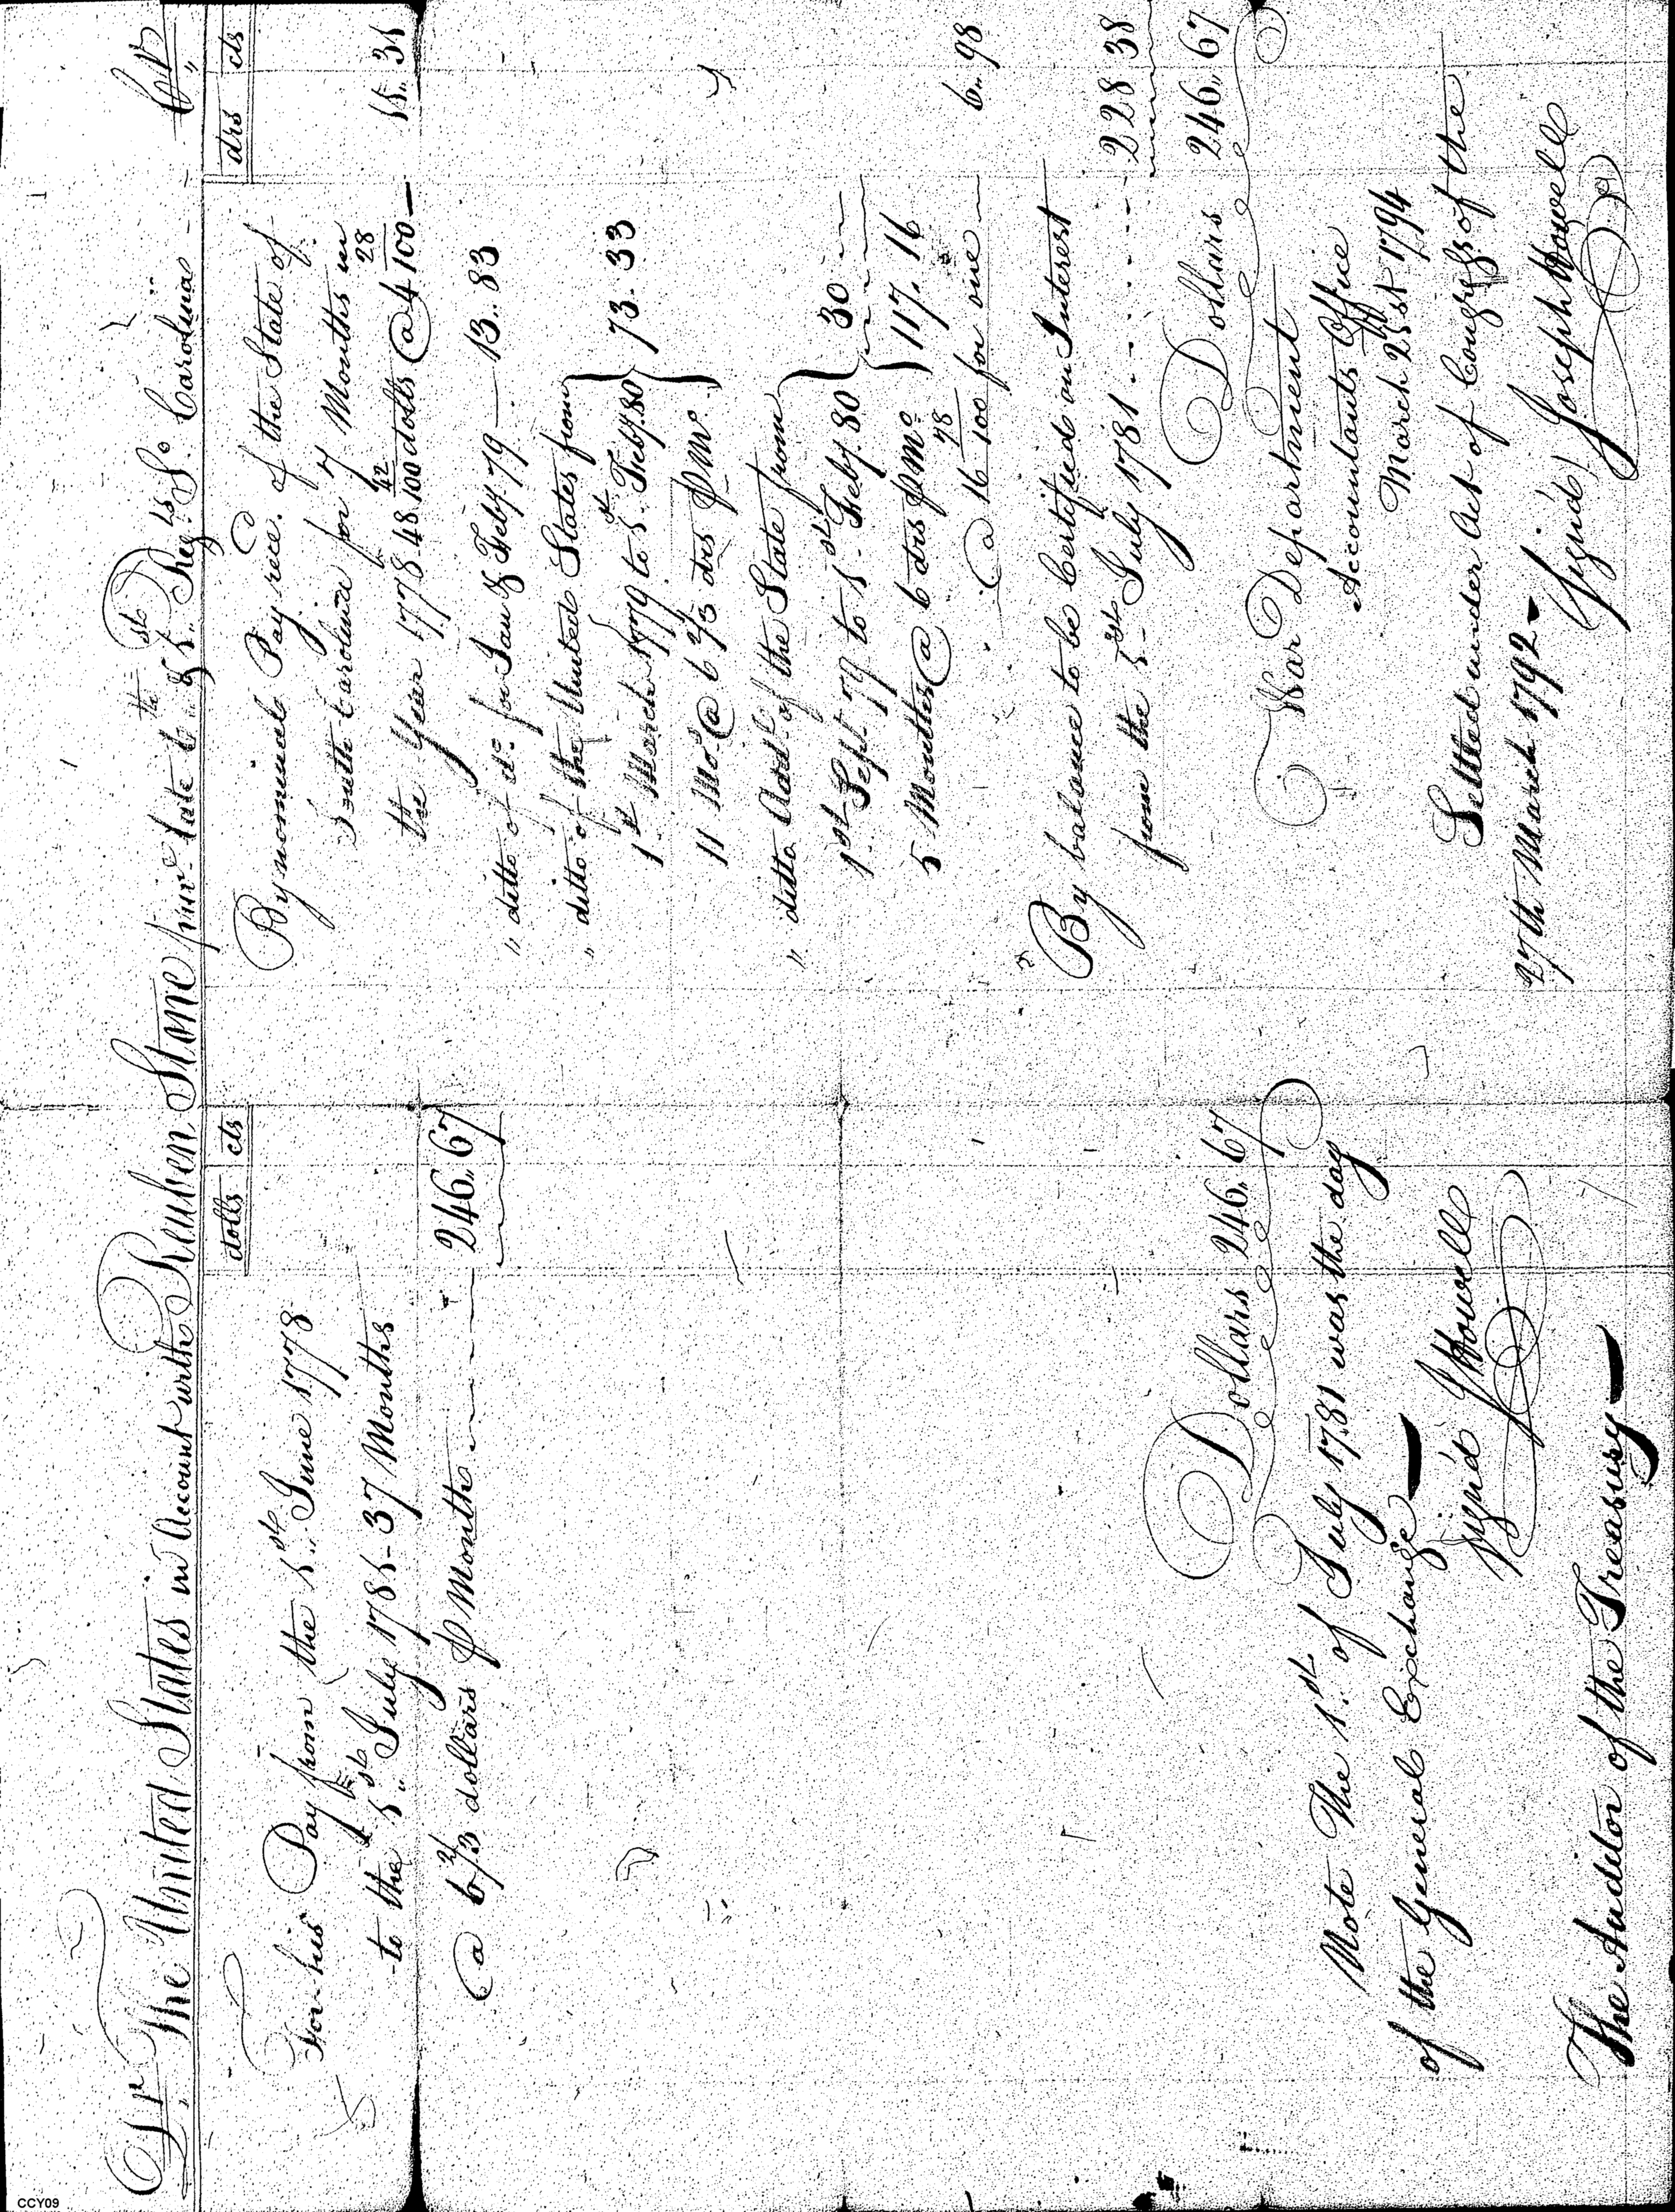 Dr. The United States in Account with Reuben Stone priv.e late of the 1st Reg.t So. Carolina - Cr
dolls cts
For his Pay from the 1st June 1778
to the 1st July 1781 - 37 Months
@ 6 2/3 dollars p Month 246,,67
Dollars 246,,67
Note The 1st of July 1781 was the day
of the General Exchange
Sign'd J Howell
The Auditor of the Treasury
drs cts
By nominal Pay rece.d of the State of
South Carolina for 7 Months in
the Year 1778. 48 42/100 dolls @ 4 28/100 11.. 31
" ditto of do. for Jan & Feby 79 13.. 83
" ditto of the United States from
1st March 1779 to 1st Feby. 80
11 Mos. @ 6 2/3 drs p Mo. } 73. 33
" ditto Addl. of the State from
1st Sept 79 to 1st Feby. 80
5 Months @ 6 drs p Mo. } 30
117. 16
@ 16 78/100 for one 6.. 98
By balance to be Certified on Interest
from the 1st July 1781 228 38
Dollars 246,,67
War Department
Accountants Office
March 21st 1794
Settled under Act of Congress of the
27th March 1792
Sign'd Joseph Howell
CCY09